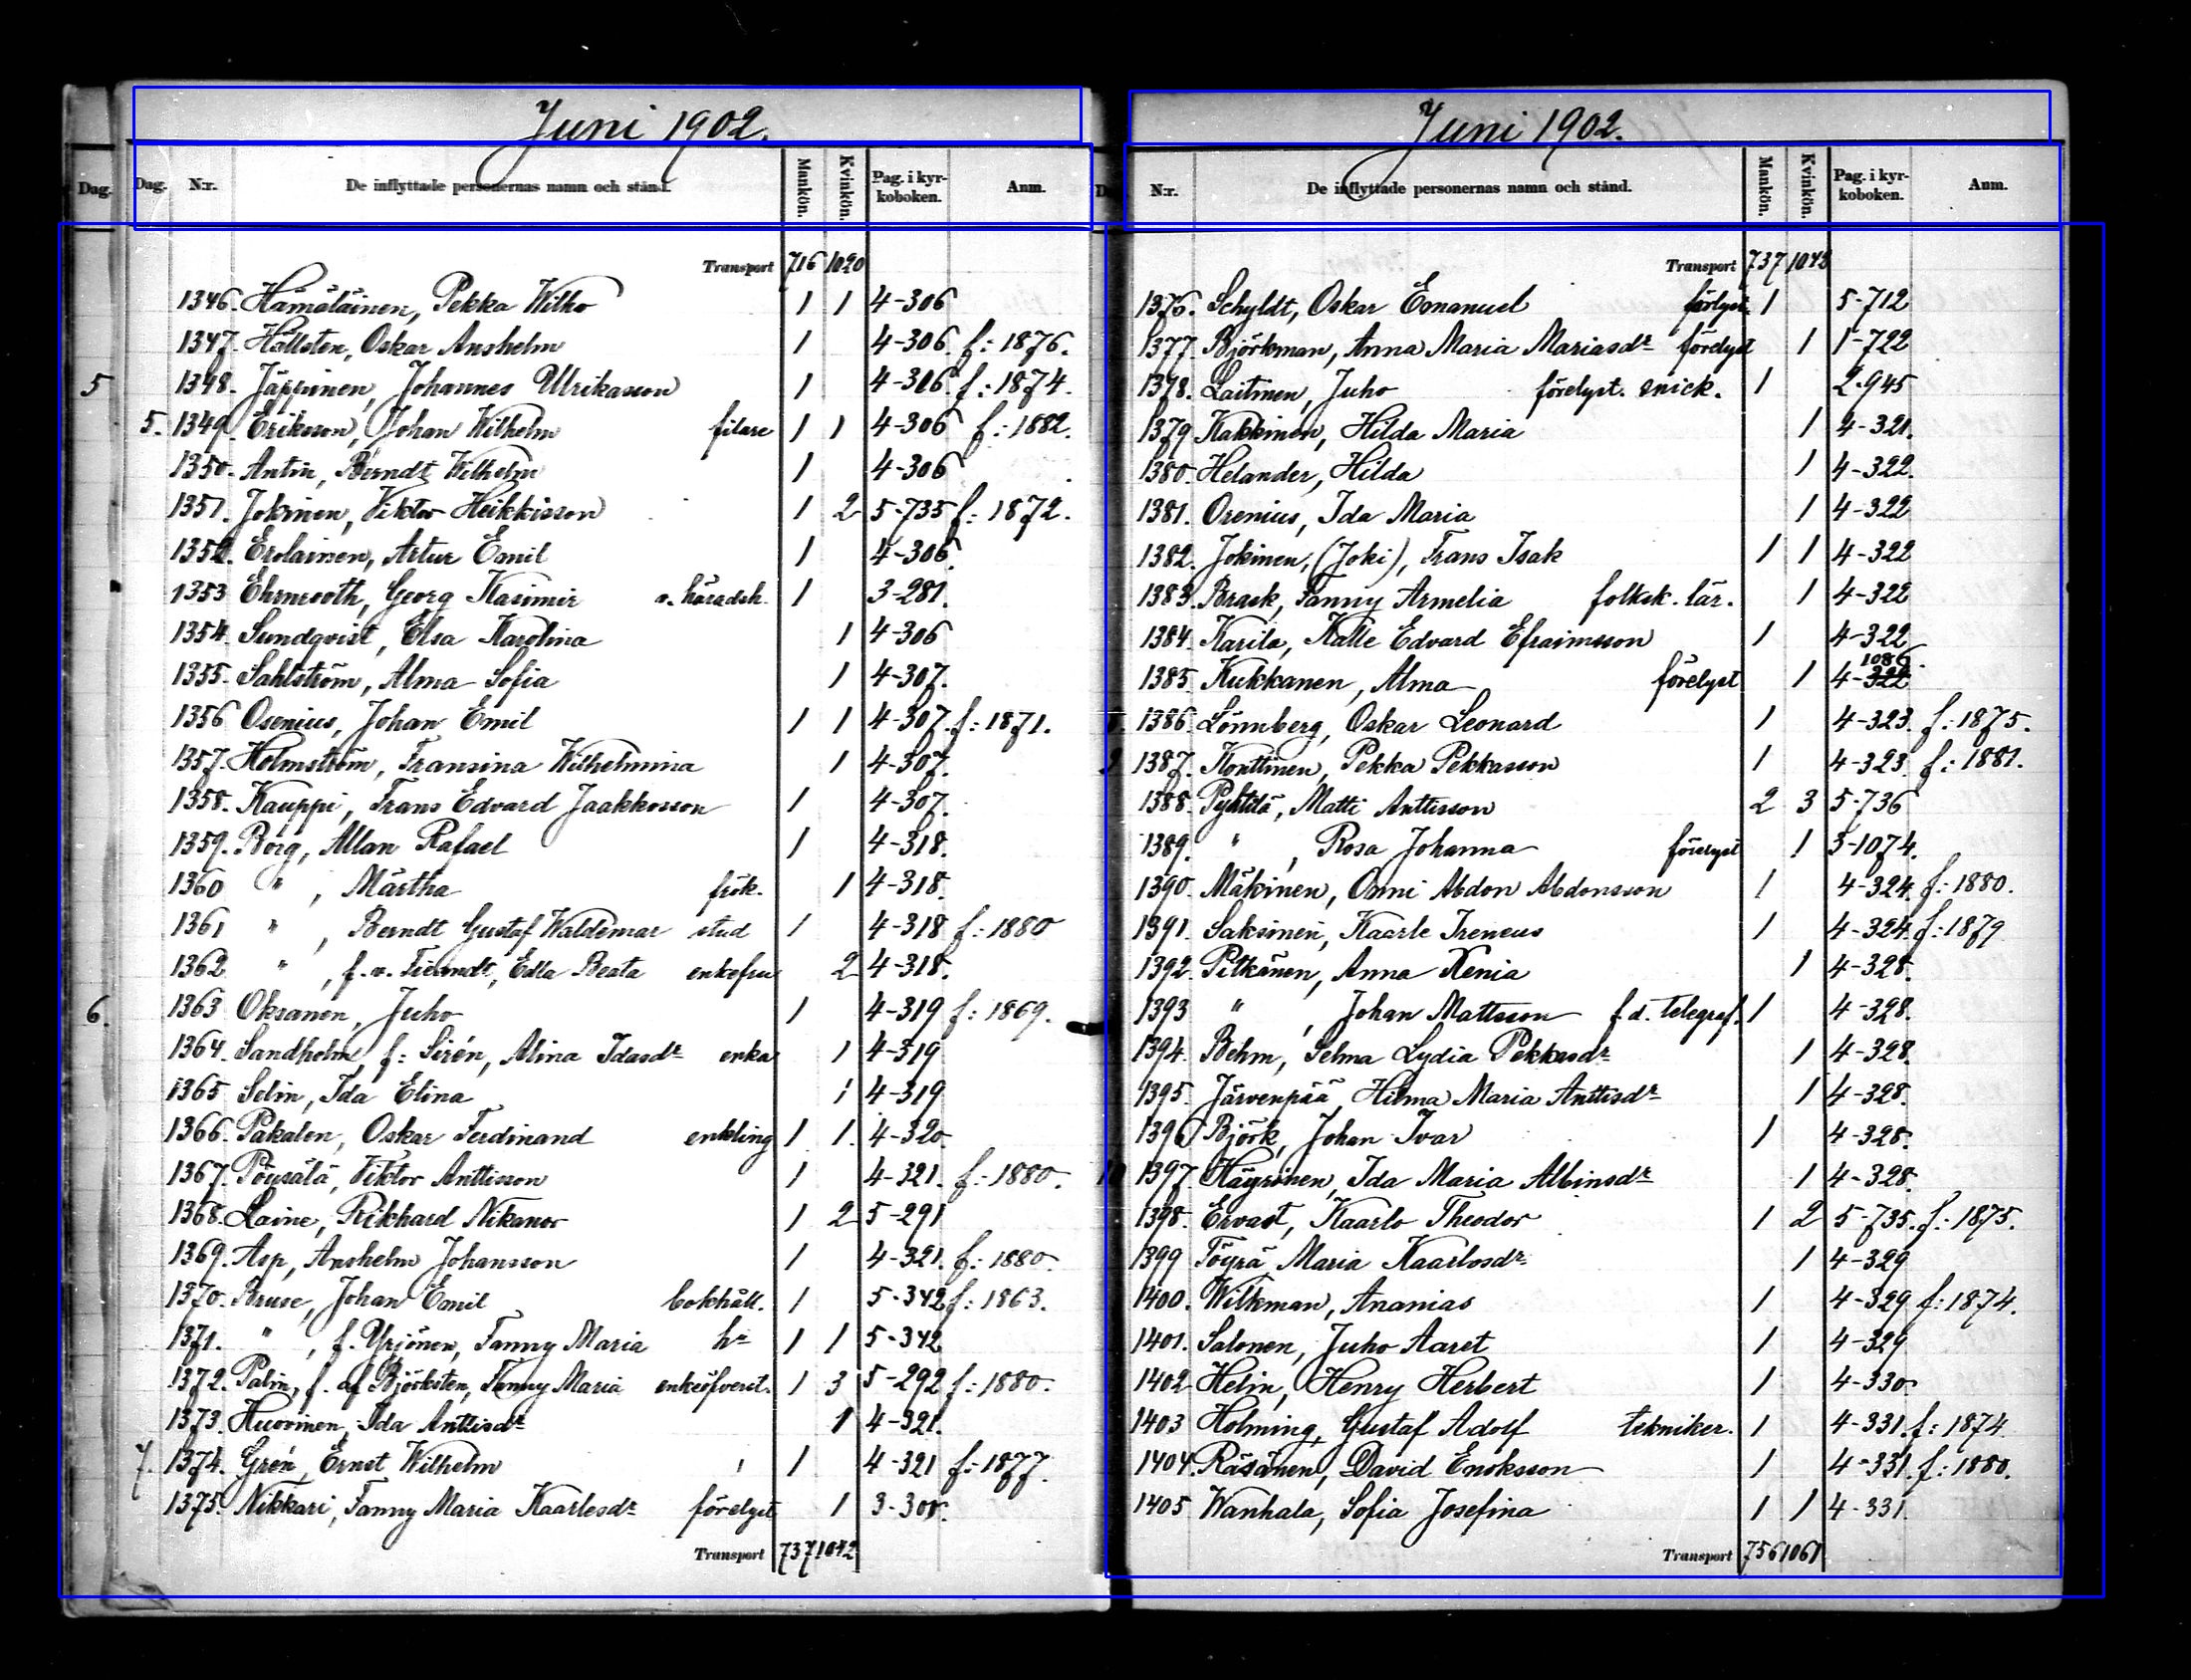 Juni 1902.
Dag. Dag. N:r. De inflyttade personernas namn och stånd. Mankön. Kvinkön. Pag. i kyrkoboken. Anm.
Transport 716 1020
1346. Hämäläinen, Pekka Wilho 1 1 4-306
1347. Hällsten, Oskar Anshelm 1 4-306. f: 1876.
5 1348. Jäppinen, Johannes Ulrikasson 1 4-306. f: 1874.
5. 1349. Eriksson, Johan Wilhelm filare 1 1 4-306 f: 1882.
1350. Antin, Berndt Wilhelm 1 4-306
1351. Jokinen, Viktor Heikkisson 1 2 5-735 f: 1872.
1352. Erolainen, Artur Emil 1 4-306.
1353 Ehrnrooth, Georg Kasimir v. häradsh. 1 3-281.
1354. Sundqvist, Elsa Karolina 1 4-306
1355. Sahlström, Alma Sofia 1 4-307.
1356 Osenius, Johan Emil 1 1 4-307. f: 1871.
1357. Holmström, Fransina Wilhelmina 1 4-307.
1358. Kauppi, Frans Edvard Jaakkosson 1 4-307.
1359. Borg, Allan Rafael 1 4-318.
1360 " , Märtha frök. 1 4-318.
1361 " , Berndt Gustaf Waldemar stud 1 4-318 f: 1880
1362 " , f. v. Tieandt, Edla Beata enkefru 2 4-318.
6. 1363 Oksanen, Juho 1 4-319 f: 1869.
1364. Sandholm, f: Sirén, Alina Idasdr enka 1 4-319
1365 Selin, Ida Elina 1 4-319
1366. Pakalen, Oskar Ferdinand enkling 1 1. 4-320.
1367. Pöysälä, Viktor Anttisson 1 4-321. f: 1880.
1368. Laine, Rikhard Nikanor 1 2 5-291
1369. Asp, Anshelm Johansson 1 4-321. f: 1880.
1370. Bruse, Johan Emil bokhåll. 1 5-342 f: 1863.
1371. " , f. Yrjönen, Fanny Maria hr 1 1 5-342
1372. Palin, f. af Björksten, Fanny Maria enkeöfverst. 1 3 5-292 f: 1880.
1373. Huovinen, Ida Anttisdr 1 4-321.
7. 1374. Grén, Ernst Wilhelm 1 4-321 f: 1877.
1375. Nikkari, Fanny Maria Kaarlesdr förelyst 1 3-300.
Transport 737 1042
Juni 1902.
N:r. De inflyttade personernas namn och stånd. Mankön. Kvinkön. Pag. i kyrkoboken. Anm.
Transport 737 1042
1376. Schyldt, Oskar Emanuel förlyst. 1 5-712
1377. Björkman, Anna Maria Mariasdr förelyst 1 1-722
1378. Laitinen, Juho förelyst. snick. 1 2-945
1379 Kakkinen, Hilda Maria 1 4-321.
1380. Helander, Hilda 1 4-322.
1381. Orenius, Ida Maria 1 4-322
1382. Jokinen, (Joki), Frans Isak 1 1 4-322
1383. Brask, Fanny Armelia folksk. lär. 1 4-322
1384. Karila, Kalle Edvard Efraimsson 1 4-322
1385 Kukkanen, Alma förelyst 1 4-322 1086.
1386. Lönnberg, Oskar Leonard 1 4-323. f: 1875.
1387. Konttinen, Pekka Pekkasson 1 4-323. f: 1881.
1388. Pyhtilä, Matti Anttisson 2 3 5-736
1389. " , Rosa Johanna förelyst 1 3-1074.
1390. Mäkinen, Onni Abdon Abdonsson 1 4-324. f: 1880.
1391. Saksinen, Kaarle Ireneus 1 4-324. f: 1879
1392. Pitkänen, Anna Xenia 1 4-328.
1393 " , Johan Mattsson f. d. telegraf. 1 4-328.
1394. Behm, Selma Lydia Pekkasdr 1 4-328.
1395. Järvenpää, Hilma Maria Anttisdr 1 4-328.
1396 Björk, Johan Ivar 1 4-328.
10 1397 Häyrinen, Ida Maria Albinsdr 1 4-328.
1398. Ervast, Kaarlo Theodor 1 2 5-735. f: 1875.
1399 Töyrä, Maria Kaarlosdr 1 4-329
1400. Wilkman, Ananias 1 4-329 f: 1874.
1401. Salonen, Juho Aaret 1 4-329
1402 Helin, Henry Herbert 1 4-330
1403 Holming, Gustaf Adolf tekniker. 1 4-331. f: 1874
1404. Räsänen, David Enoksson 1 4-331. f: 1880.
1405 Wanhala, Sofia Josefina 1 1 4-331.
Transport 756 1061